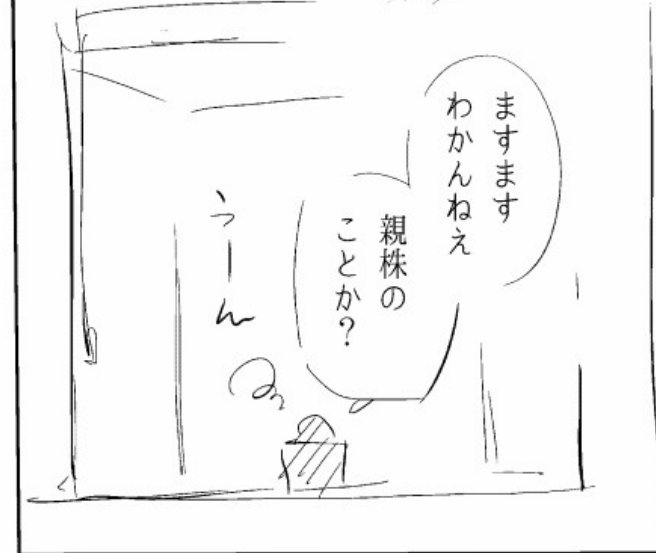 ますます
わかんねえ
親株の
ことか?
うーん